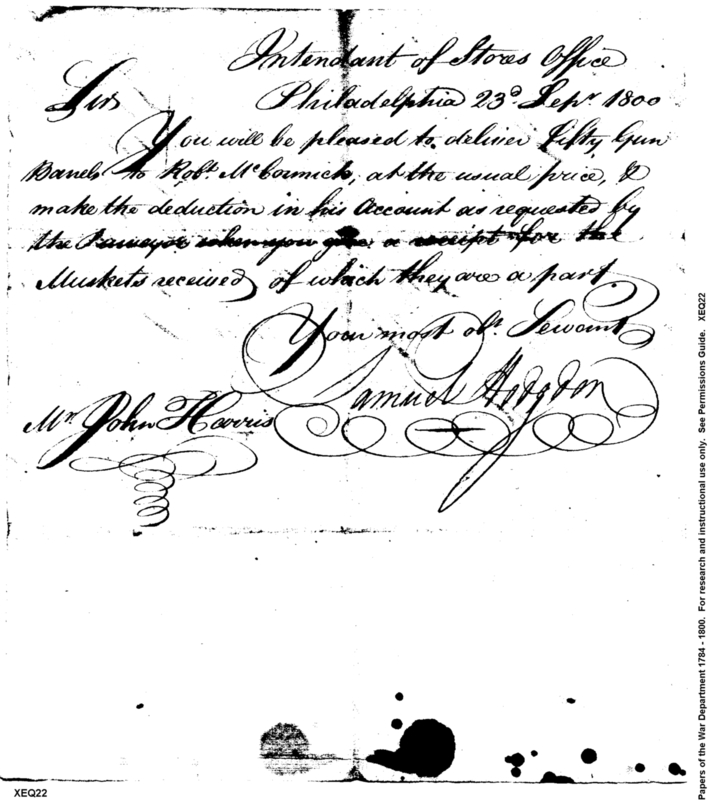 Intendant of Stores Office
Philadelphia 23d. Sepr. 1800
Sir
You will be pleased to deliver Fifty Gun
Barrels to Robt. McCormick, at the usual price, &
make the deduction in his Account as requested by
the Purveyor when you give a receipt for the
Muskets received of which they are a part
Your most obt. Servant
Samuel Hodgdon
Mr. John Harris
Papers of the War Department 1784 - 1800. For research and instructional use only. See Permissions Guide. XEQ22
XEQ22